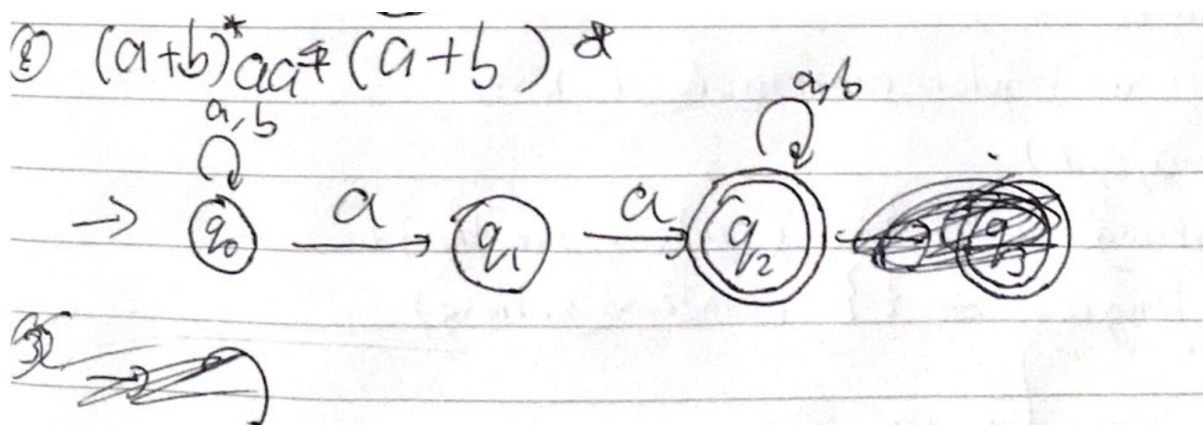 ② (a+b)*aa+(a+b)*
a,b a,b
→ q0 a q1 a q2 q3